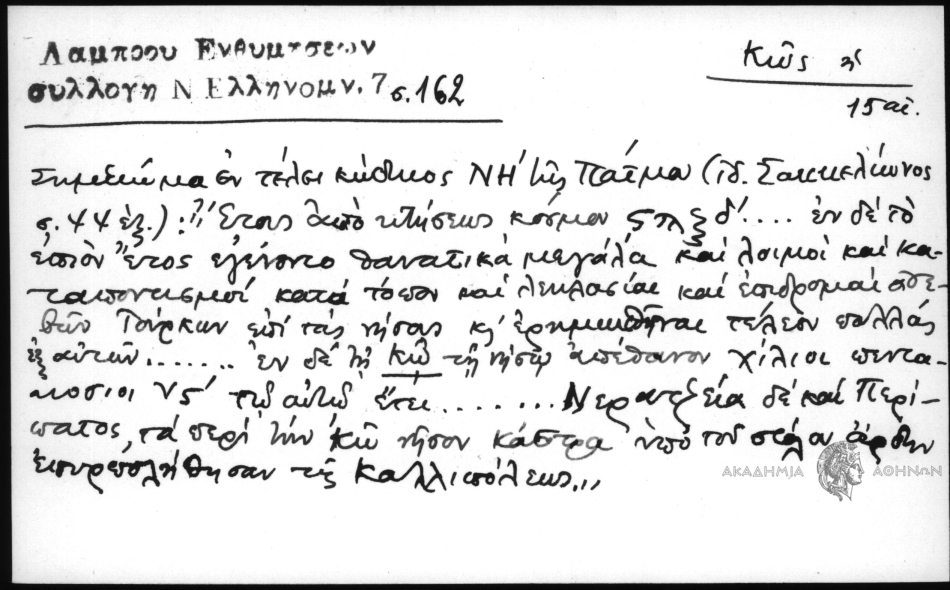 Λάμπρου Ενθυμήσεων
συλλογή Ν Ελληνομν. 7 σ. 162
Κῶς ἡ
15 αἰ.
Σημείωμα ἐν τέλει κώδικος ΝΗ' τῆς Πάτμου (ἰδ. Σακκελίωνος
σ. 44 ἑξ.): "Ἔτους ἀπὸ κτήσεως κόσμου ϛπξδ'.... ἐν δὲ τὸ
ἐπιὸν ἔτος ἐγένοντο θανατικά μεγάλα καὶ λοιμοὶ καὶ κα-
ταποντισμοί κατά τόπον καὶ λεηλασίαι καὶ ἐπιδρομαί ἀθε-
ῶν Τούρκων ἐπί τάς νήσους κ' ἐρημωθῆναι τέλεον πολλάς
ἐξ αὐτῶν....... ἐν δέ τῇ Κῷ τῇ νήσῳ ἀπέθανον χίλιοι πεντα-
κόσιοι νς' τῷ αὐτῷ ἔτει........ Νερατζεία δέ καί Περί-
πατος, τά περί τήν Κῶ νῆσον κάστρα ὑπό τοῦ στόλου ἄρδην
ἐπυρπολήθησαν τῆς Καλλιπόλεως..."
ΑΚΑΔΗΜΙΑ ΑΘΗΝΩΝ